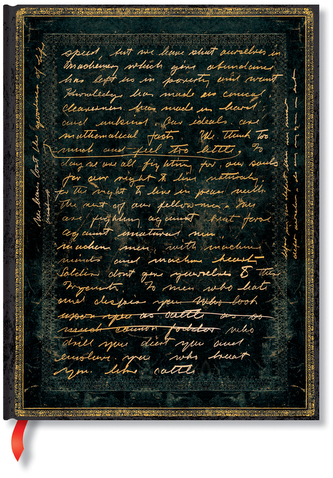 speed but we have shut ourselves in
Machinery which gives abundance
has left us in poverty and want
Knowledge has made us cynical
cleverness has made us hard
and unkind. Our ideals are
mathematical facts. We think too
much and feel too little. So
they we are all fighting for our souls
for our right to live naturally,
for the right to live in peace with
the rest of our fellowmen. We
are fighting against great force
against unnatural men
machine men, with machine
minds and machine hearts
Soldiers dont give yourselves to the
Tyrants. To men who hate
and despise you Who look
upon you as cattle
much cannon fodder who
drill you diet you and
enslave you who treat
you like cattle
We have lost the of life